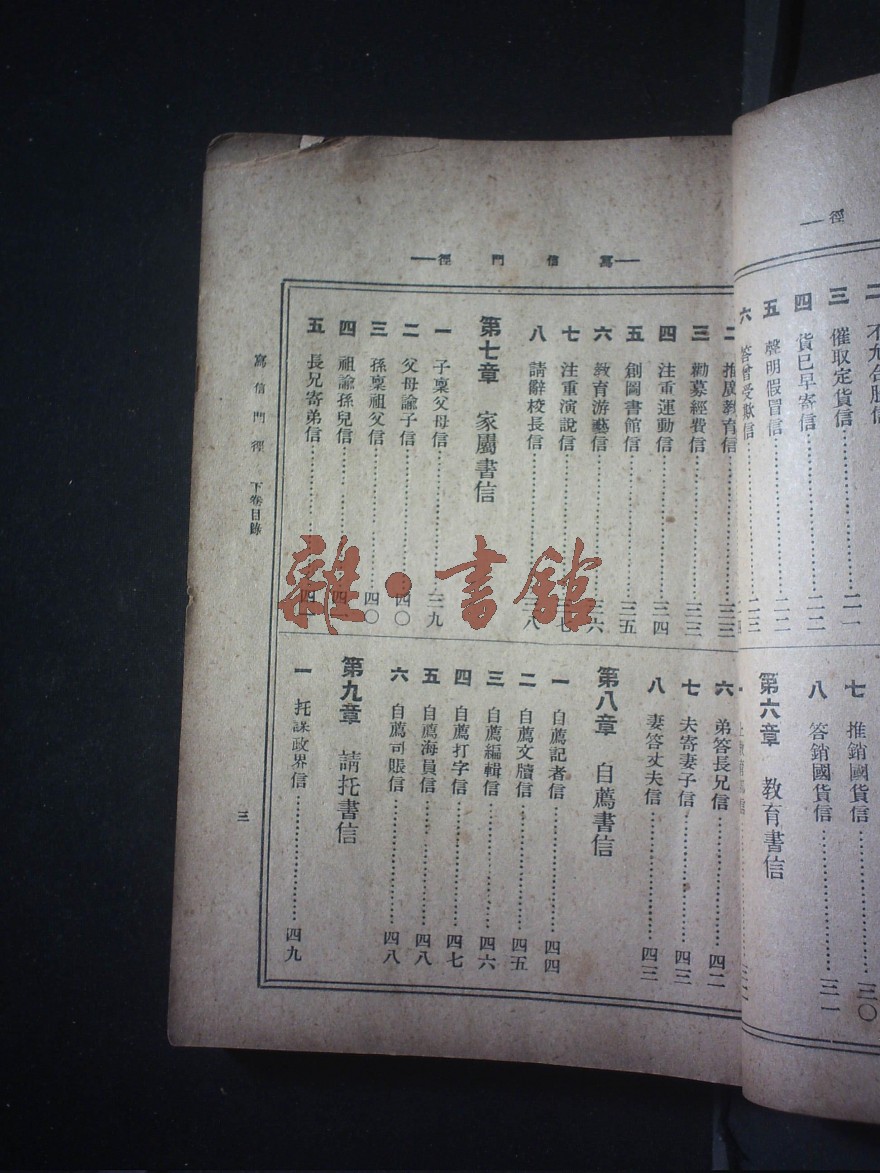 徑
二 不允合股信
三 催取定貨信 二一
四 貨已早寄信 二二
五 聲明假冒信 二二
六 答曾受欺信 二三
七 推銷國貨信 三〇
八 答銷國貨信 三一
第六章 教育書信
寫信門徑
二 推廣教育信 三三
三 勸募經費信 三三
四 注重運動信 三四
五 創圖書館信 三五
六 教育游藝信 三六
七 注重演說信 三七
八 請辭校長信 三八
第七章 家屬書信
一 子稟父母信 三九
二 父母諭子信 四〇
三 孫稟祖父信 四〇
四 祖諭孫兒信 四一
五 長兄寄弟信
六 弟答長兄信 四二
七 夫寄妻子信 四三
八 妻答丈夫信 四三
第八章 自薦書信
一 自薦記者信 四四
二 自薦文牘信 四五
三 自薦編輯信 四六
四 自薦打字信 四七
五 自薦海員信 四八
六 自薦司賬信 四八
第九章 請托書信
一 托謀政界信 四九
寫信門徑 下卷目錄 三
雜·書館